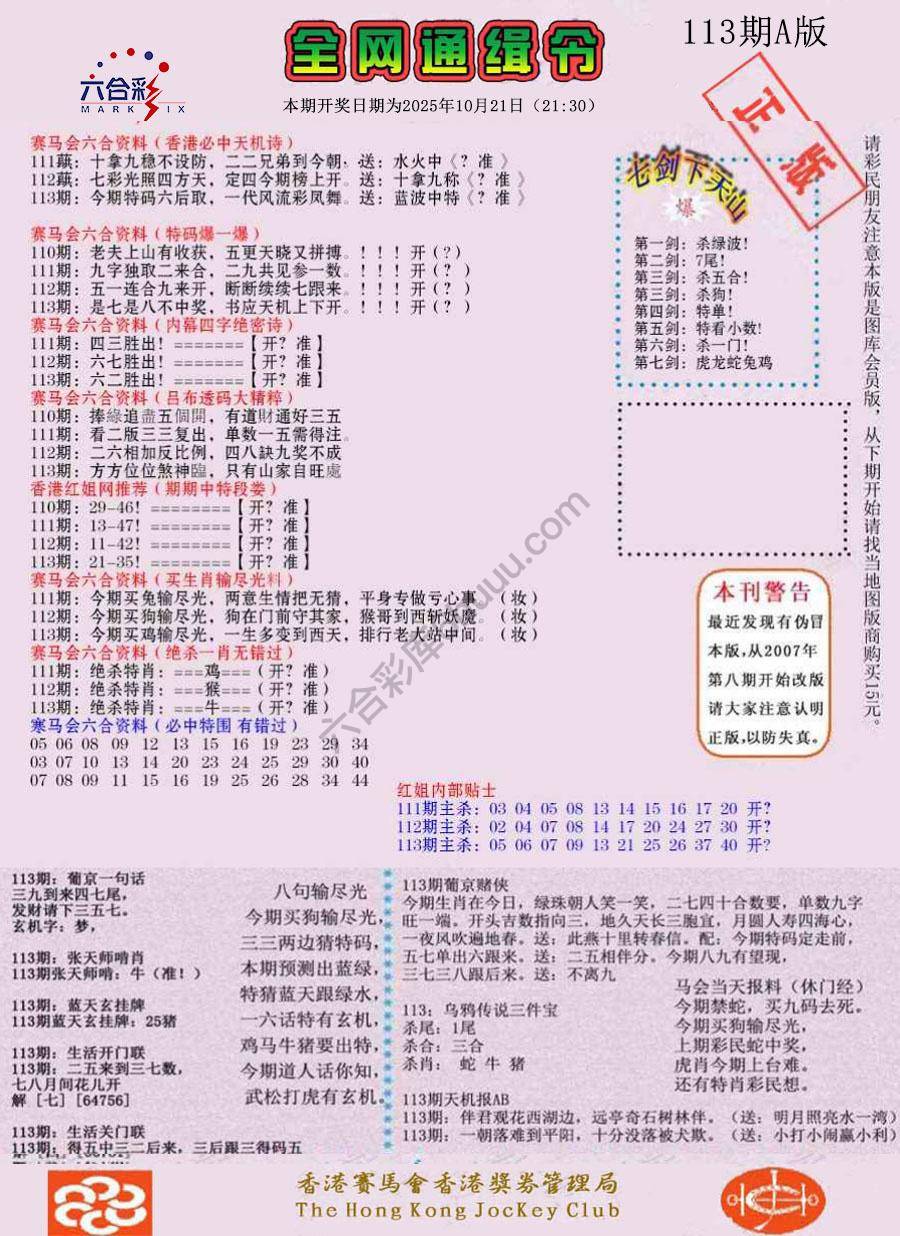 113期A版
全网通缉令
六合彩
MARK SIX
本期开奖日期为2025年10月21日（21:30）
正版
赛马会六合资料（香港必中天机诗）
111蘓: 十拿九稳不设防，二二兄弟到今朝，送：水火中《？准 》
112蘓: 七彩光照四方天，定四今期榜上开。送：十拿九称《？准 》
113期: 今期特码六后取，一代风流彩凤舞。送：蓝波中特《？准 》
赛马会六合资料（特码爆一爆）
110期: 老夫上山有收获，五更天晓又拼搏。！！！开（?）
111期: 九字独取二来合，二九共见参一数。！！！开（? ）
112期: 五一连合九来开，断断续续七跟来。！！！开（? ）
113期: 是七是八不中奖，书应天机上下开。！！！开（? ）
赛马会六合资料（内幕四字绝密诗）
111期: 四三胜出! =======【 开? 准 】
112期: 六七胜出! =======【 开? 准 】
113期: 六二胜出! =======【 开? 准 】
赛马会六合资料（吕布透码大精粹）
110期: 捧綠追盡五個開，有道財通好三五
111期: 看二版三三复出，单数一五需得注。
112期: 二六相加反比例，四八缺九奖不成
113期: 方方位位煞神臨，只有山家自旺處
香港红姐网推荐（期期中特段娄）
110期: 29-46! ========【 开? 准 】
111期: 13-47! ========【 开? 准 】
112期: 11-42! ========【 开? 准 】
113期: 21-35! ========【 开? 准 】
赛马会六合资料（买生肖输尽光料）
111期: 今期买兔输尽光，两意生情把无猜，平身专做亏心事 （妆 ）
112期: 今期买狗输尽光，狗在门前守其家，猴哥到西斩妖魔。（妆 ）
113期: 今期买鸡输尽光，一生多变到西天，排行老大站中间。（妆 ）
赛马会六合资料（绝杀一肖无错过）
111期: 绝杀特肖: ===鸡===（开? 准）
112期: 绝杀特肖: ===猴===（开? 准）
113期: 绝杀特肖: ===牛===（开? 准）
寒马会六合资料（必中特围 有错过）
05 06 08 09 12 13 15 16 19 23 29 34
03 07 10 13 14 20 23 24 25 29 30 40
07 08 09 11 15 16 19 25 26 28 34 44
七剑下天山
爆
第一剑: 杀绿波!
第二剑: 7尾!
第三剑: 杀五合!
第三剑: 杀狗!
第四剑: 特单!
第五剑: 特看小数!
第六剑: 杀一门!
第七剑: 虎龙蛇兔鸡
请彩民朋友注意本版是图库会员版，从下期开始请找当地图版商购买15元。
本刊警告
最近发现有伪冒
本版,从2007年
第八期开始改版
请大家注意认明
正版,以防失真。
红姐内部贴士
111期主杀: 03 04 05 08 13 14 15 16 17 20 开?
112期主杀: 02 04 07 08 14 17 20 24 27 30 开?
113期主杀: 05 06 07 09 13 21 25 26 37 40 开?
113期: 葡京一句话
三九到来四七尾，
发财请下三五七。
玄机字: 梦，
113期: 张天师啃肖
113期张天师啃: 牛（准!）
113期: 蓝天玄挂牌
113期蓝天玄挂牌: 25猪
113期: 生活开门联
113期: 二五来到三七数，
七八月间花儿开
解 [七] [64756]
113期: 生活关门联
113期: 得五中三二后来，三后跟三得码五
八句输尽光
今期买狗输尽光，
三三两边猜特码，
本期预测出蓝绿，
特猜蓝天跟绿水，
一六话特有玄机，
鸡马牛猪要出特，
今期道人话你知，
武松打虎有玄机。
113期葡京赌侠
今期生肖在今日，绿珠朝人笑一笑，二七四十合数要，单数九字
旺一端。开头吉数指向三，地久天长三胞宜，月圆人寿四海心，
一夜风吹遍地春。送: 此燕十里转春信。配: 今期特码定走前，
五七单出六跟来。送: 二五相伴分。今期八九有望现，
三七三八跟后来。送: 不离九
113: 乌鸦传说三件宝
杀尾: 1尾
杀合: 三合
杀肖: 蛇 牛 猪
马会当天报料（休门经）
今期禁蛇，买九码去死。
今期买狗输尽光，
上期彩民蛇中奖，
虎肖今期上台难。
还有特肖彩民想。
113期天机报AB
113期: 伴君观花西湖边，远亭奇石树林伴。（送: 明月照亮水一湾）
113期: 一朝落难到平阳，十分没落被犬欺。（送: 小打小闹赢小利）
香港賽馬會香港獎券管理局
The Hong Kong JocKey Club